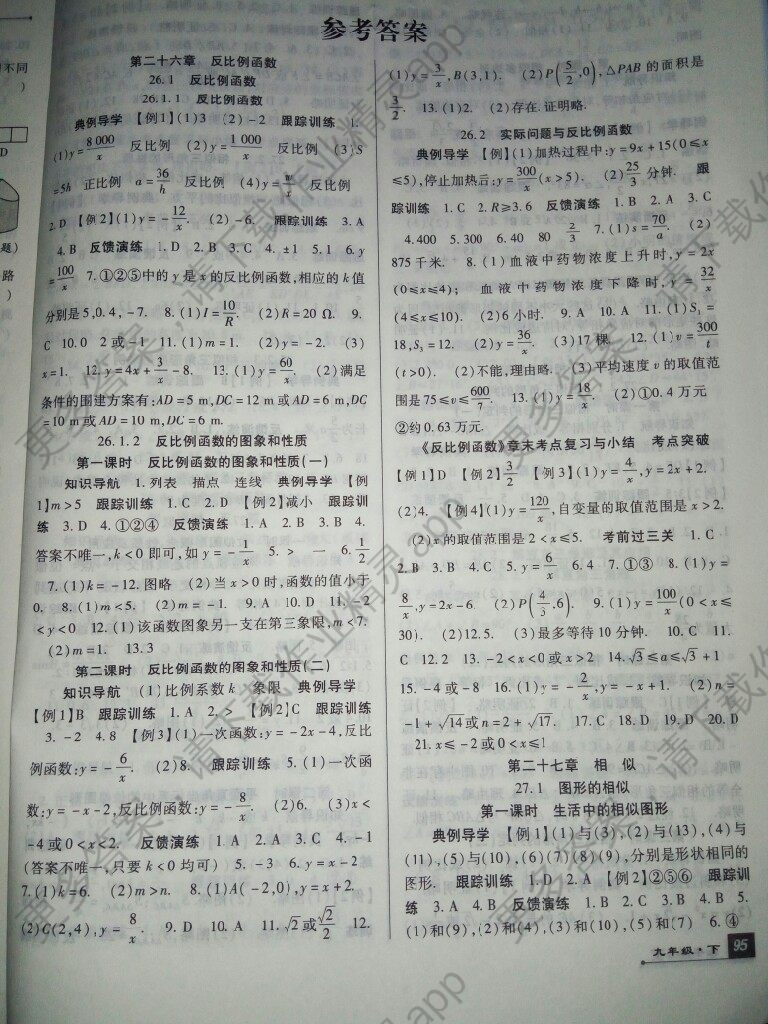 参考答案
第二十六章 反比例函数
26.1 反比例函数
26.1.1 反比例函数
典例导学 【例1】(1)3 (2)-2 跟踪训练 1.
(1)y=8 000/x 反比例 (2)y=1 000/x 反比例 (3)S
=5h 正比例 a=36/h 反比例 (4)y=w/x 反比例
2.D 【例2】(1)y=-12/x. (2)-6. 跟踪训练 3.A
4.B 反馈演练 1.D 2.B 3.C 4.±1 5.1 6.y
=100/x 7.①②⑤中的y是x的反比例函数,相应的k值
分别是5,0.4,-7. 8.(1)I=10/R. (2)R=20 Ω. 9.
C 10.0 2或-1 11.(1)m=1. (2)y=-2. (3)
x=1. 12.y=4x+3/x-8. 13.(1)y=60/x. (2)满足
条件的围建方案有:AD=5 m,DC=12 m或AD=6 m,DC
=10 m或AD=10 m,DC=6 m.
26.1.2 反比例函数的图象和性质
第一课时 反比例函数的图象和性质(一)
知识导航 1.列表 描点 连线 典例导学 【例
1】m>5 跟踪训练 1.C 2.D 【例2】减小 跟踪训
练 3.D 4.①②④ 反馈演练 1.A 2.B 3.B 4.
答案不唯一,k<0即可,如y=-1/x 5.> 一 6.1/2
7.(1)k=-12.图略 (2)当x>0时,函数的值小于
0. 8.(1)m<5. (2)m=-1. 9.A 10.D 11.-2
<y<0 12.(1)该函数图象另一支在第三象限,m<7.
(2)m=1. 13.3
第二课时 反比例函数的图象和性质(二)
知识导航 (1)比例系数k 象限 典例导学
【例1】B 跟踪训练 1.A 2.> 【例2】C 跟踪训练
3.-2 4.8 【例3】(1)一次函数:y=-2x-4,反比
例函数:y=-6/x. (2)8. 跟踪训练 5.(1)一次函
数:y=-x-2,反比例函数:y=-8/x. (2)6. (3)x<
-4或0<x<2. 反馈演练 1.A 2.A 3.C 4.-1
(答案不唯一,只要k<0均可) 5.-3 6.y=x-2
7.(1)k=6. (2)m>n. 8.(1)A(-2,0),y=x+2.
(2)C(2,4),y=8/x. 9.D 10.A 11.√2或√2/2 12.
(1)y=3/x,B(3,1). (2)P(5/2,0),△PAB的面积是
3/2. 13.(1)2. (2)存在.证明略.
26.2 实际问题与反比例函数
典例导学 【例】(1)加热过程中:y=9x+15(0≤x
≤5),停止加热后:y=300/x(x>5). (2)25/3分钟. 跟
踪训练 1.C 2.R≥3.6 反馈演练 1.B 2.A 3.C
4.400 5.300 6.40 80 2/3 7.(1)s=70/a. (2)
875千米. 8.(1)血液中药物浓度上升时,y=2x
(0≤x≤4); 血液中药物浓度下降时,y=32/x
(4≤x≤10). (2)6小时. 9.A 10.A 11.(1)S₁=
18,S₃=12. (2)y=36/x. (3)17棵. 12.(1)v=300/t
(t>0). (2)不能,理由略. (3)平均速度v的取值范
围是75≤v≤600/7. 13.(1)y=18/x. (2)①0.4万元
②约0.63万元.
《反比例函数》章末考点复习与小结 考点突破
【例1】D 【例2】3/2 【例3】(1)y=4/x,y=2x+2.
(2)4. 【例4】(1)y=120/x,自变量的取值范围是x>2.
(2)x的取值范围是2<x≤5. 考前过三关 1.C
2.B 3.B 4.C 5.y=6/x 6.4 7.①③ 8.(1)y=
8/x,y=2x-6. (2)P(4/3,6). 9.(1)y=100/x(0<x≤
30). (2)12.5. (3)最多等待10分钟. 10.C 11.
C 12.2 13.-2<x<0或x>2 14.√3≤a≤√3+1
15.-4或-8 16.(1)y=-2/x,y=-x+1. (2)n=
-1+√14或n=2+√17. 17.C 18.D 19.D 20.D
21.x≤-2或0<x≤1
第二十七章 相 似
27.1 图形的相似
第一课时 生活中的相似图形
典例导学 【例1】(1)与(3),(2)与(13),(4)与
(11),(5)与(10),(6)(7)(8)(9),分别是形状相同的
图形. 跟踪训练 1.D 2.A 【例2】②⑤⑥ 跟踪训
练 3.A 4.B 反馈演练 1.B 2.C 3.B 4.B 5.
(1)和(9),(2)和(4),(3)和(10),(5)和(7) 6.④
九年级·下 95
更多答案,请下载作业精灵.app